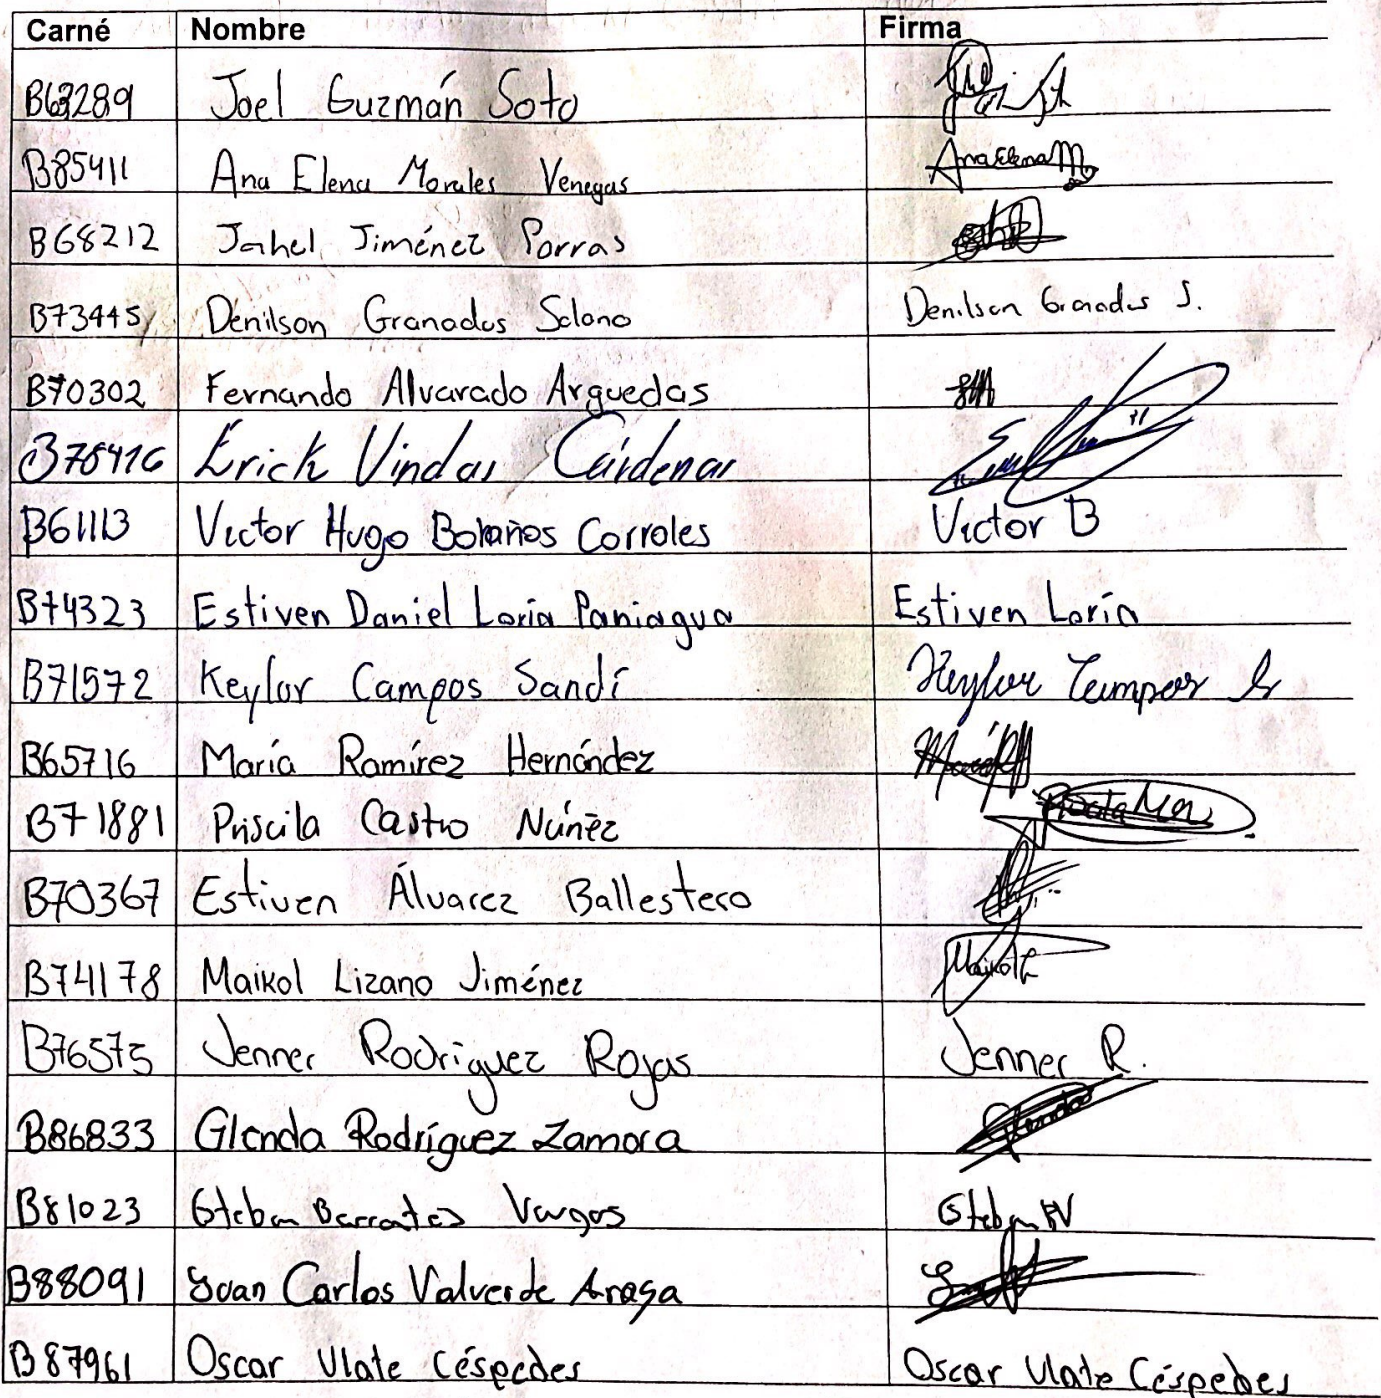 Carné Nombre Firma
B63289 Joel Guzmán Soto
B85411 Ana Elena Morales Venegas Ana Elena M
B68212 Jahel Jiménez Porras
B73445 Denilson Granados Solano Denilson Granados S.
B70302 Fernando Alvarado Arguedas
B78416 Erick Vindas Cárdenas
B61113 Victor Hugo Bolaños Corrales Victor B
B74323 Estiven Daniel Loría Paniagua Estiven Loría
B71572 Keylor Campos Sandí Keylor Campos S
B65716 María Ramírez Hernández
B71881 Priscila Castro Núñez
B70367 Estiven Álvarez Ballestero
B74178 Maikol Lizano Jiménez Maikol L
B76575 Jenner Rodriguez Rojas Jenner R.
B86833 Glenda Rodríguez Zamora Glenda
B81023 Esteban Barrantes Vargas Esteban BV
B88091 Juan Carlos Valverde Araya
B87961 Oscar Ulate Céspedes Oscar Ulate Céspedes